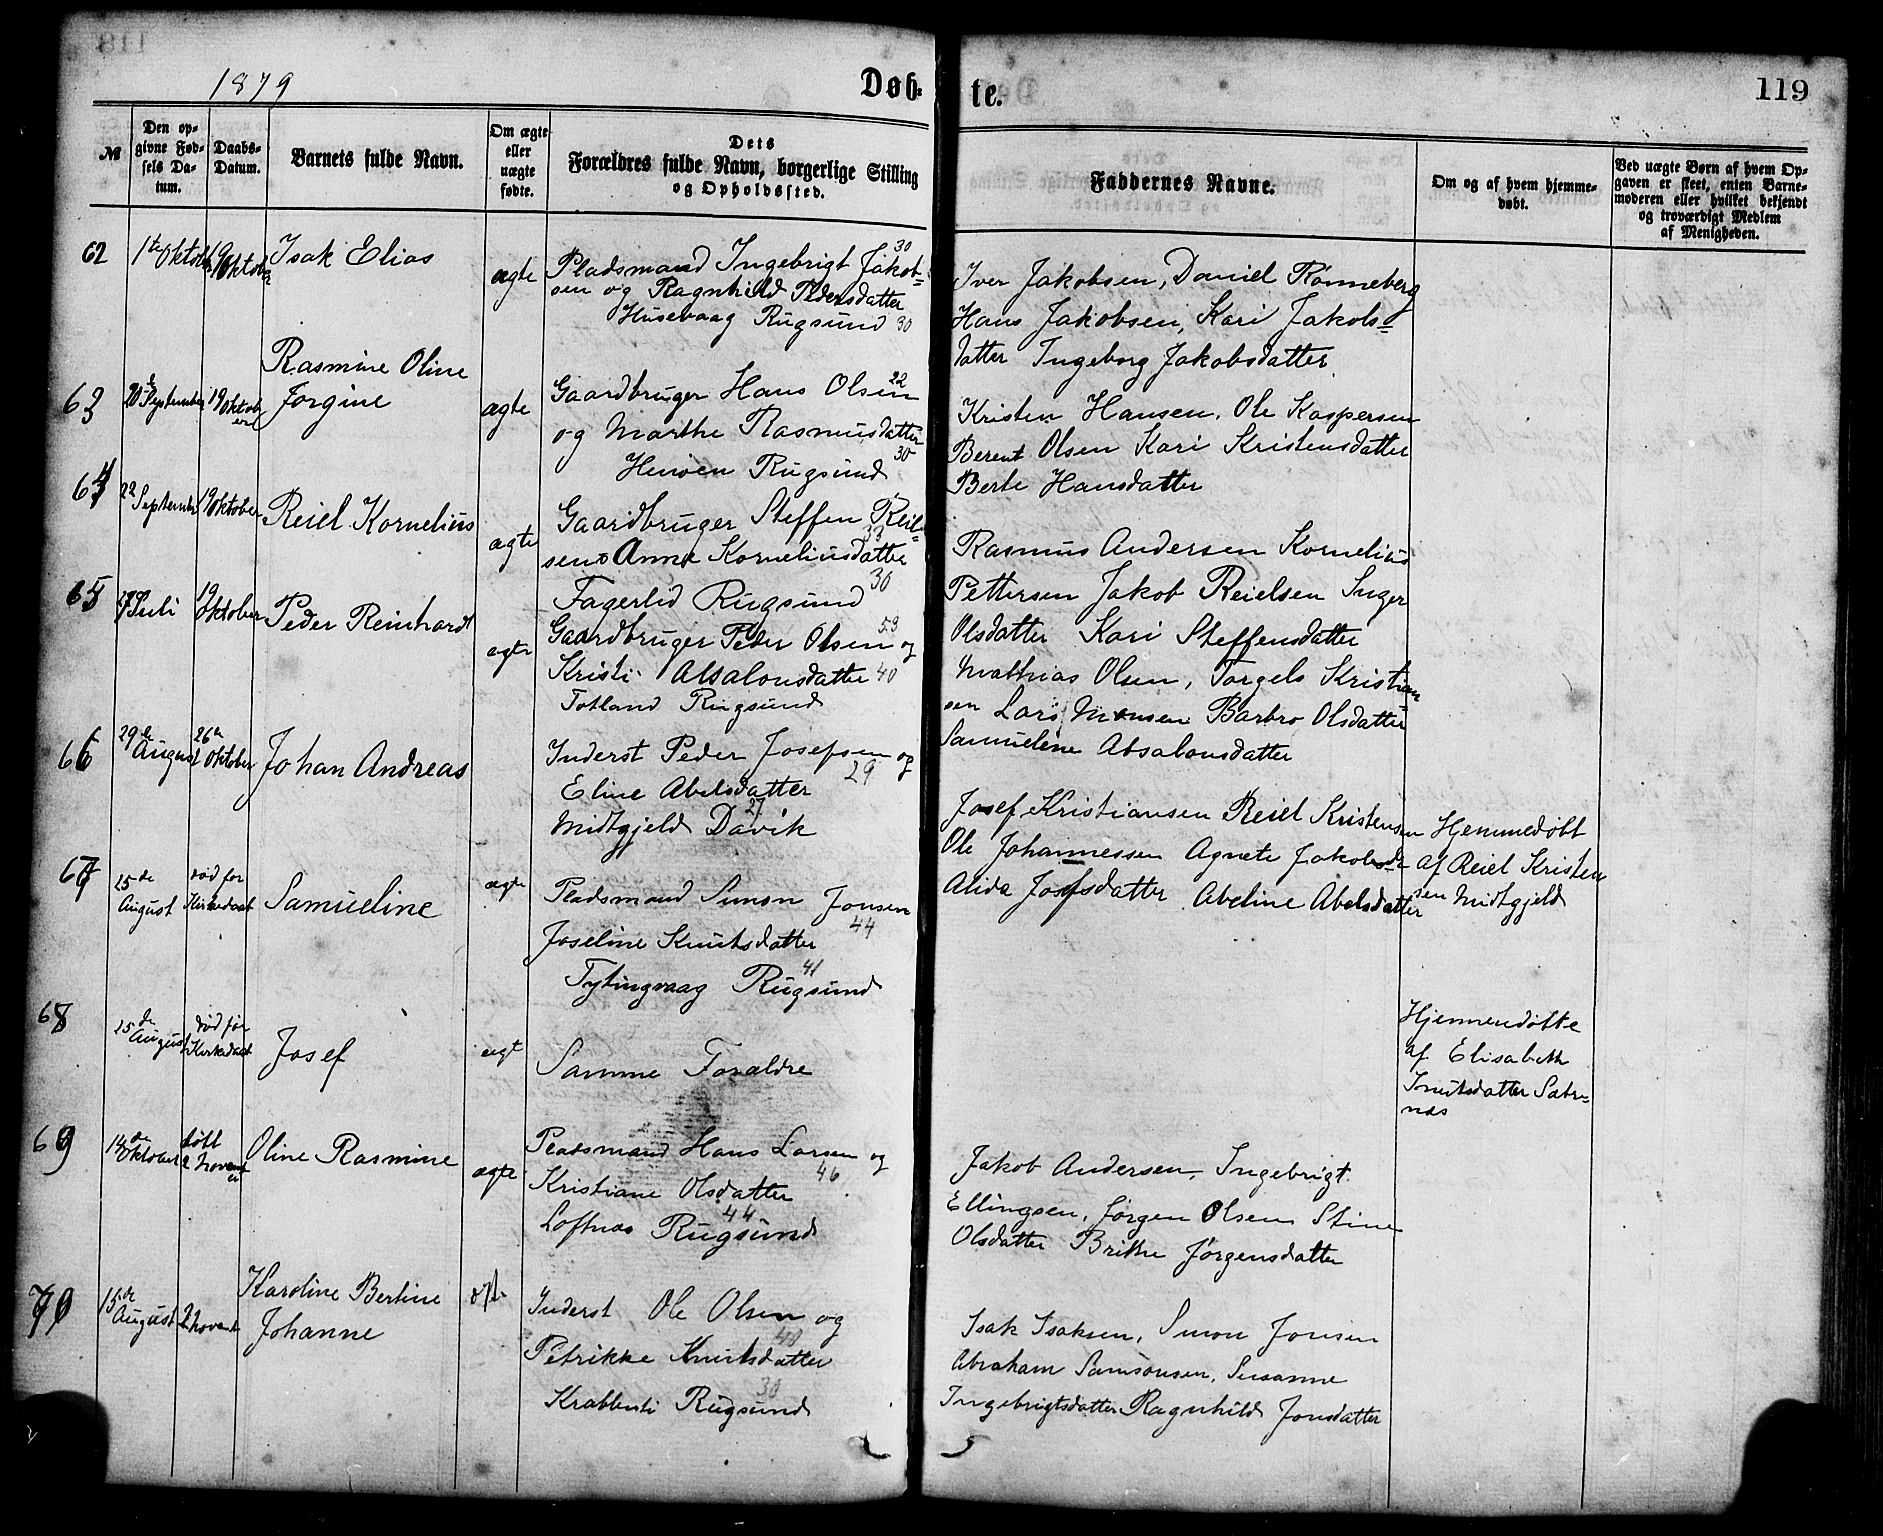 1879
Døb-
te.
119
№
Den op-
givne Fød-
sels Da-
tum.
Daabs-
Datum.
Barnets fulde Navn.
Om ægte
eller
uægte
fødte.
Dets
Forældres fulde Navn, borgerlige Stilling
og Opholdssted.
Faddernes Navne.
Om og af hvem hjemme-
døbt.
Ved uægte Børn af hvem Op-
gaven er skeet, enten Barne-
moderen eller hvilket bekjendt
og troværdigt Medlem
af Menigheden.
62
1te Oktober
19 Oktober
Isak Elias
ægte
Pladsmand Ingebrigt Jakob= 30
sen og Ragnhild Pedersdatter
Husevaag Rugsund 30
Iver Jakobsen, Daniel Rønneberg
Hans Jakobsen, Kari Jakobs=
datter Ingeborg Jakobsdatter
63
20de September
19 Oktober
Rasmine Oline
Jørgine
ægte
Gaardbruger Hans Olsen 22
og Marthe Rasmusdatter
30
Henøen Rugsund
Kristen Hansen, Ole Kaspersen
Berent Olsen Kari Kristensdatter
Berte Hansdatter
64
22 September
19 Oktober
Reiel Kornelius
ægte
Gaardbruger Steffen Reiel=
33
sen o Anne Korneliusdatter
Fagerlid Rugsund 30
Rasmus Andersen Kornelius
Pettersen Jakob Reielsen Inger
Olsdatter Kari Steffensdatter
65
Juli
19 Oktober
Peder Reinhardt
ægte
Gaardbruger Peder Olsen og 53
Kristi Absalonsdatter 40
Totland Rugsund
Mathias Olsen, Torgels Kristian=
sen Lars Monsen Barbro Olsdatter
Samueline Absalonsdatter
66
29de August
26de Oktober
Johan Andreas
Inderst Peder Josefsen og
29
Eline Abelsdatter
27
Midtgjeld Davik
Josef Kristiansen Reiel Kristensen
Ole Johannessen Agnete Jakobsd
Alida Josefsdatter Abeline Abelsdatter
Hjemmedøbt
af Reiel Kristen
sen Midtgjeld
67
25de
August
død før
Kirkedaab
Samueline
ægte
Pladsmand Simon Jonsen
44
Joseline Knutsdatter
41
Tytingvaag Rugsund
68
25de
August
død før
Kirkedaab
Josef
ægt
Samme Forældre
Hjemmedøbte
af Elisabeth
Knutsdatter Sætre=
nes
69
14de
Oktober
døbt
2 Novem
Oline Rasmine
ægte
Pladsmand Hans Larsen og
46
Kristiane Olsdatter
44
Loftnæs Rugsund
Jakob Andersen, Ingebrigt
Ellingsen, Jørgen Olsen Stine
Olsdatter Brithe Jørgensdatter
70
15de
August
2 Novem
Karoline Bertine
Johanne
Inderst Ole Olsen og
40
Petrikke Knutsdatter
30
Krabbesti Rugsund
Isak Isaksen, Simon Jonsen
Abraham Samsonsen, Susanne
Ingebrigtsdatter Ragnhild Jonsdatter